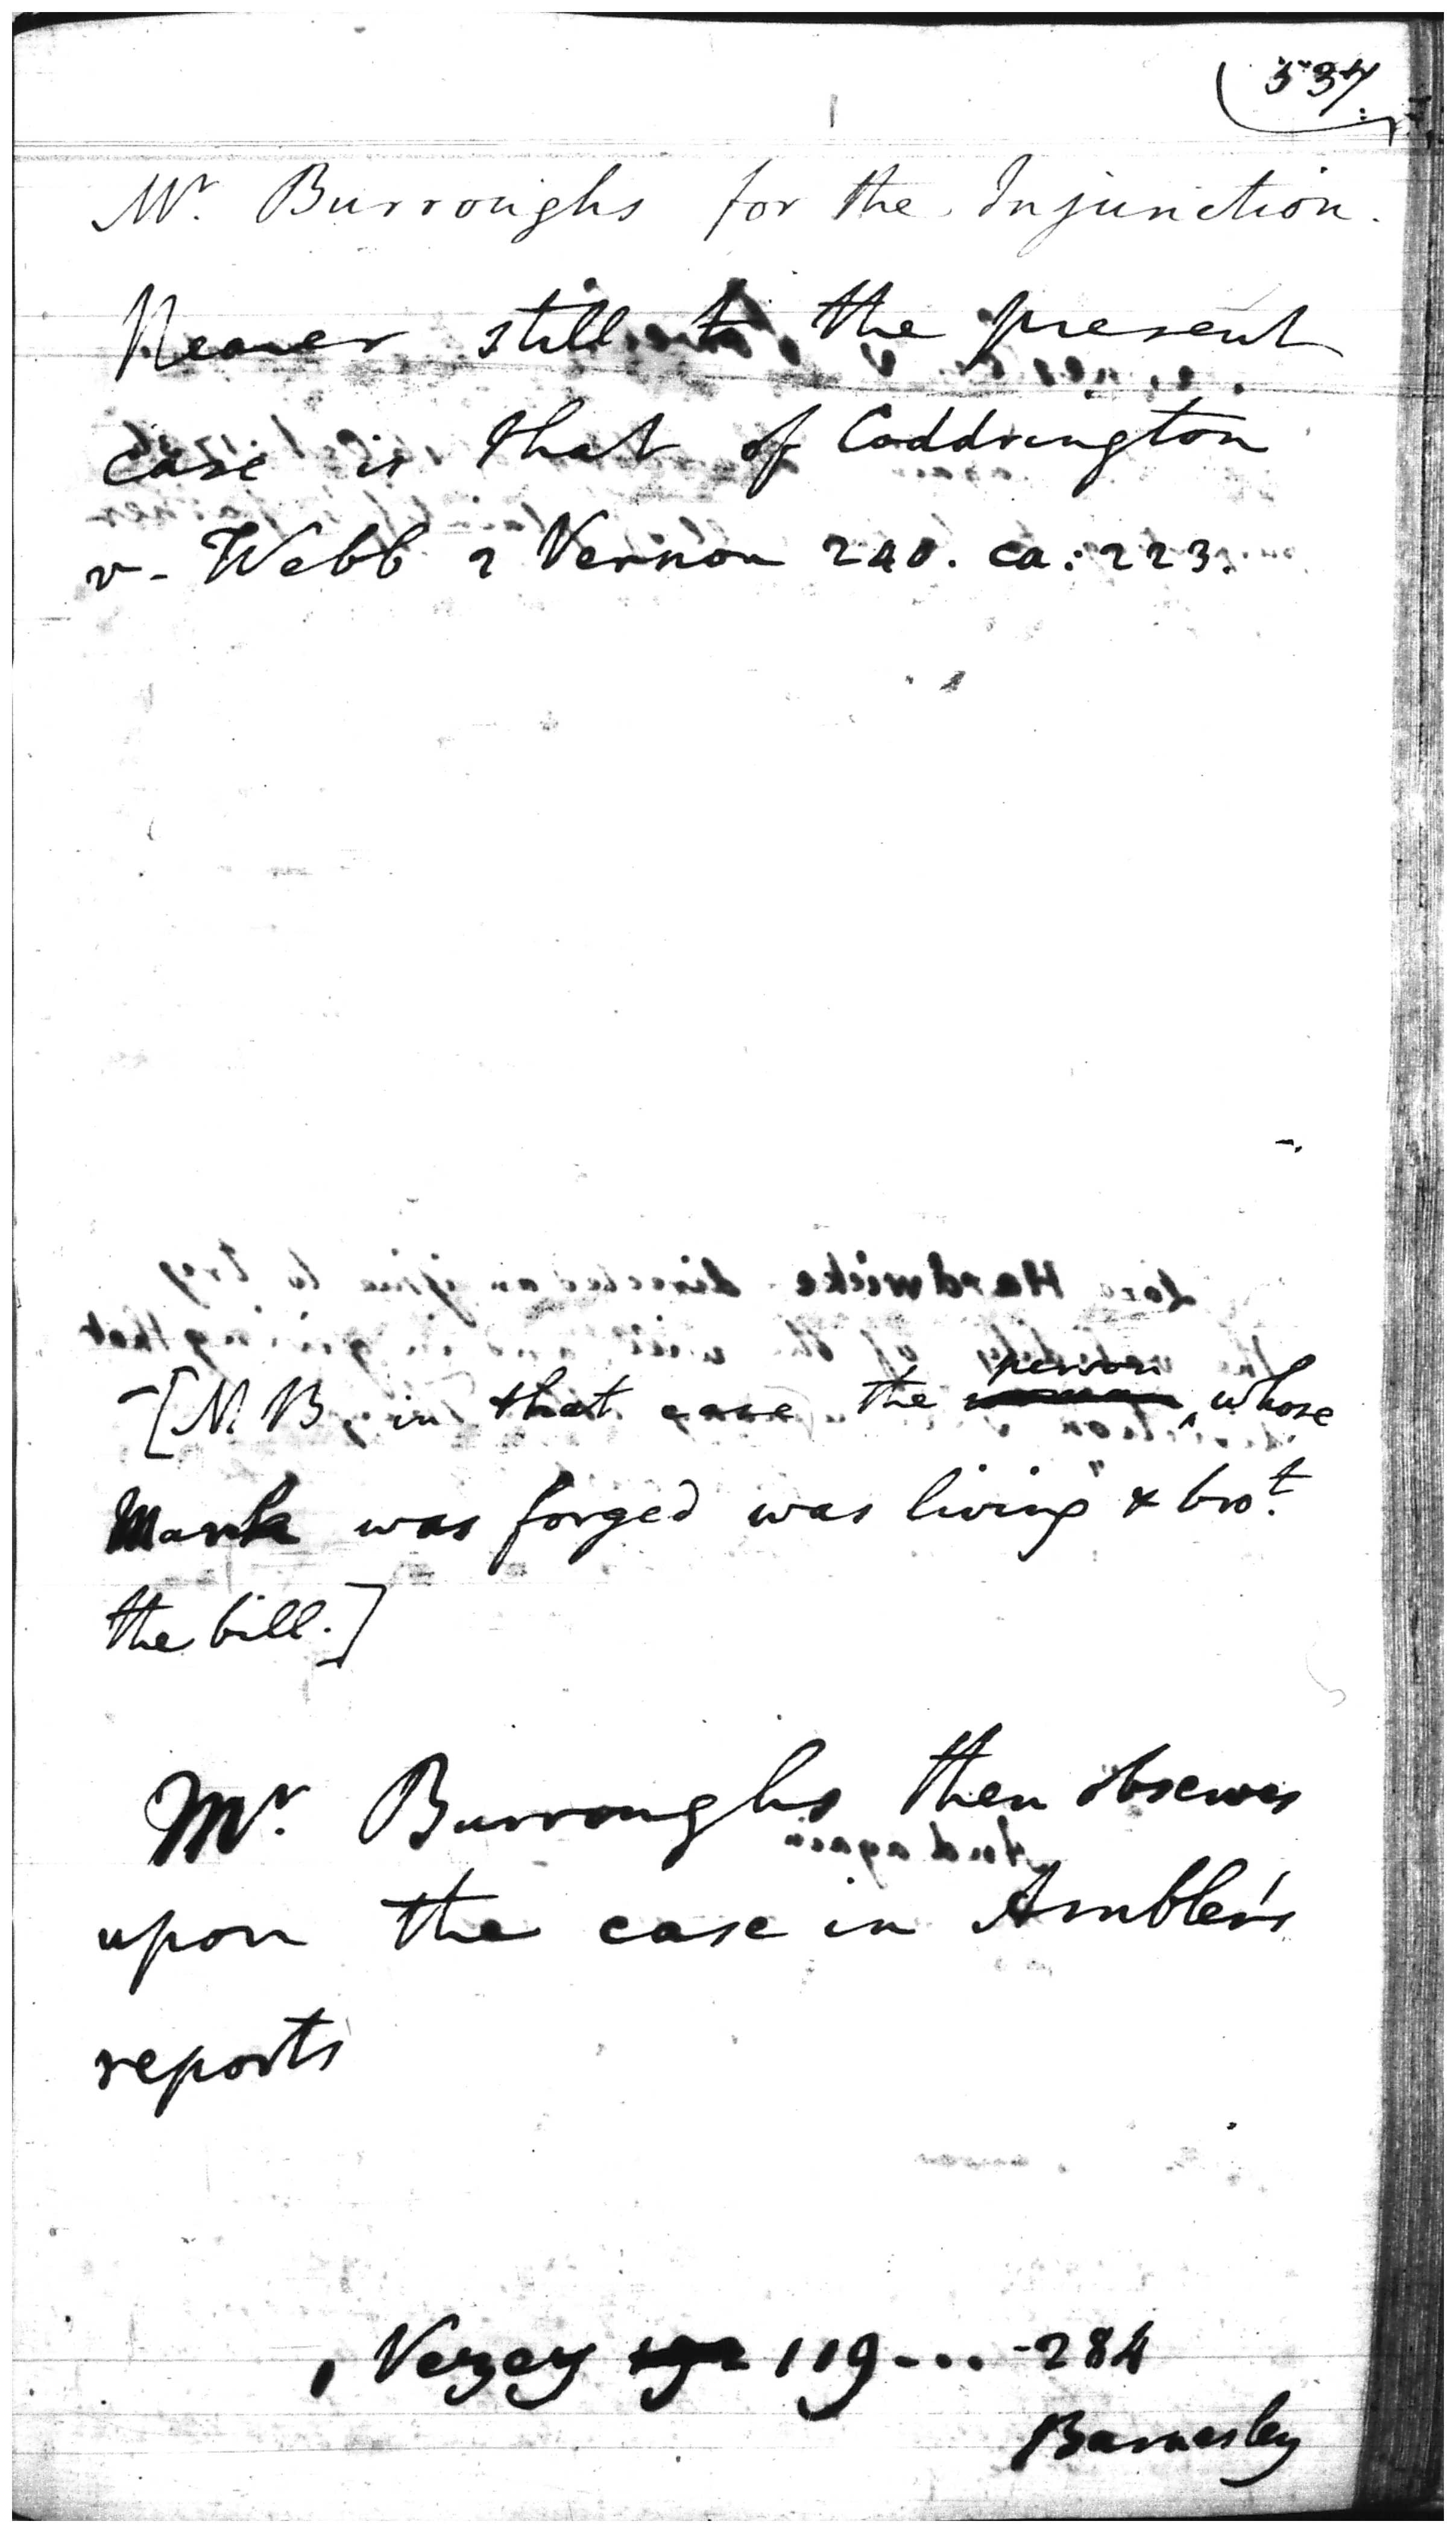 537
Mr. Burroughs for the Injunction.
Nearer still to the present
case is that of Coddrington
v. Webb 2 Vernon 240. ca: 223.
person
[N B, in that case the ^ whose
Mark was forged was living & brot.
the bill.]
Mr. Burroughs then observes
upon the case in Ambler's
reports
1 Vezey 119 ... - 284
Barnesley